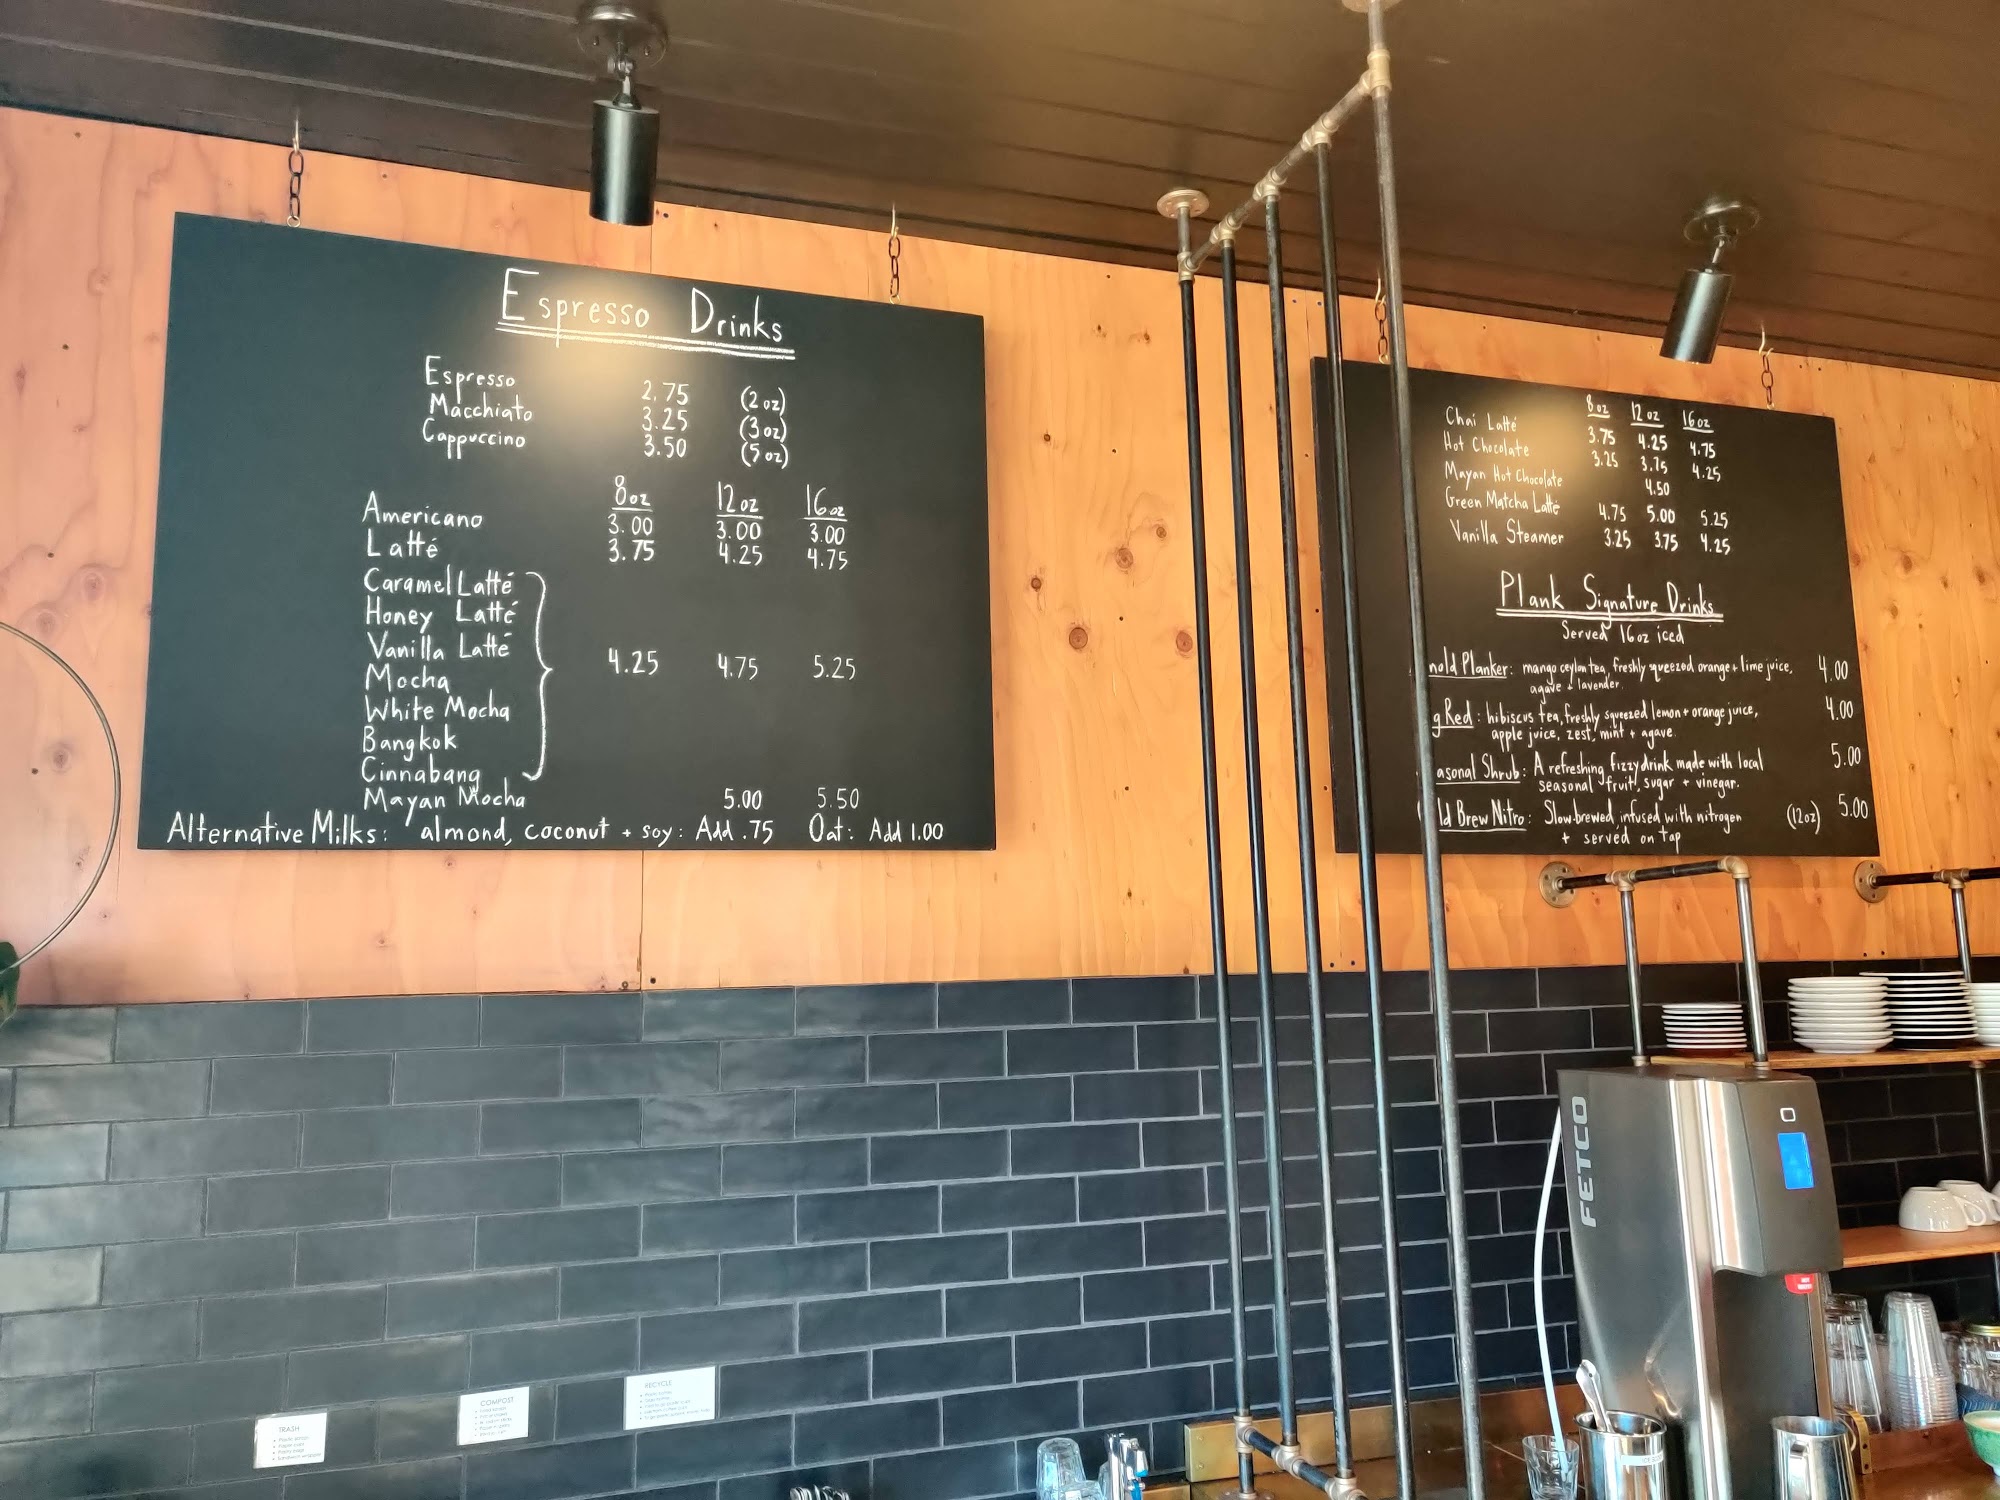 Espresso Drinks
Espresso 2.75 (2 oz)
Macchiato 3.25 (3 oz)
Cappuccino 3.50 (5 oz)
8oz 12oz 16oz
Americano 3.00 3.00 3.00
Latté 3.75 4.25 4.75
Caramel Latté
Honey Latté
Vanilla Latté
Mocha 4.25 4.75 5.25
White Mocha
Bangkok
Cinnabang
Mayan Mocha 5.00 5.50
Alternative Milks: almond, coconut + soy: Add .75 Oat: Add 1.00
8oz 12oz 16oz
Chai Latté 3.75 4.25 4.75
Hot Chocolate 3.25 3.75 4.25
Mayan Hot Chocolate 4.50
Green Matcha Latté 4.75 5.00 5.25
Vanilla Steamer 3.25 3.75 4.25
Plank Signature Drinks
Served 16oz iced
nold Planker: mango ceylon tea, freshly squeezed orange + lime juice, 4.00
agave + lavender.
g Red: hibiscus tea, freshly squeezed lemon + orange juice, 4.00
apple juice, zest, mint + agave.
asonal Shrub: A refreshing fizzy drink made with local 5.00
seasonal fruit, sugar + vinegar.
ld Brew Nitro: Slow-brewed, infused with nitrogen (12oz) 5.00
+ served on tap
FETCO
TRASH
COMPOST
RECYCLE